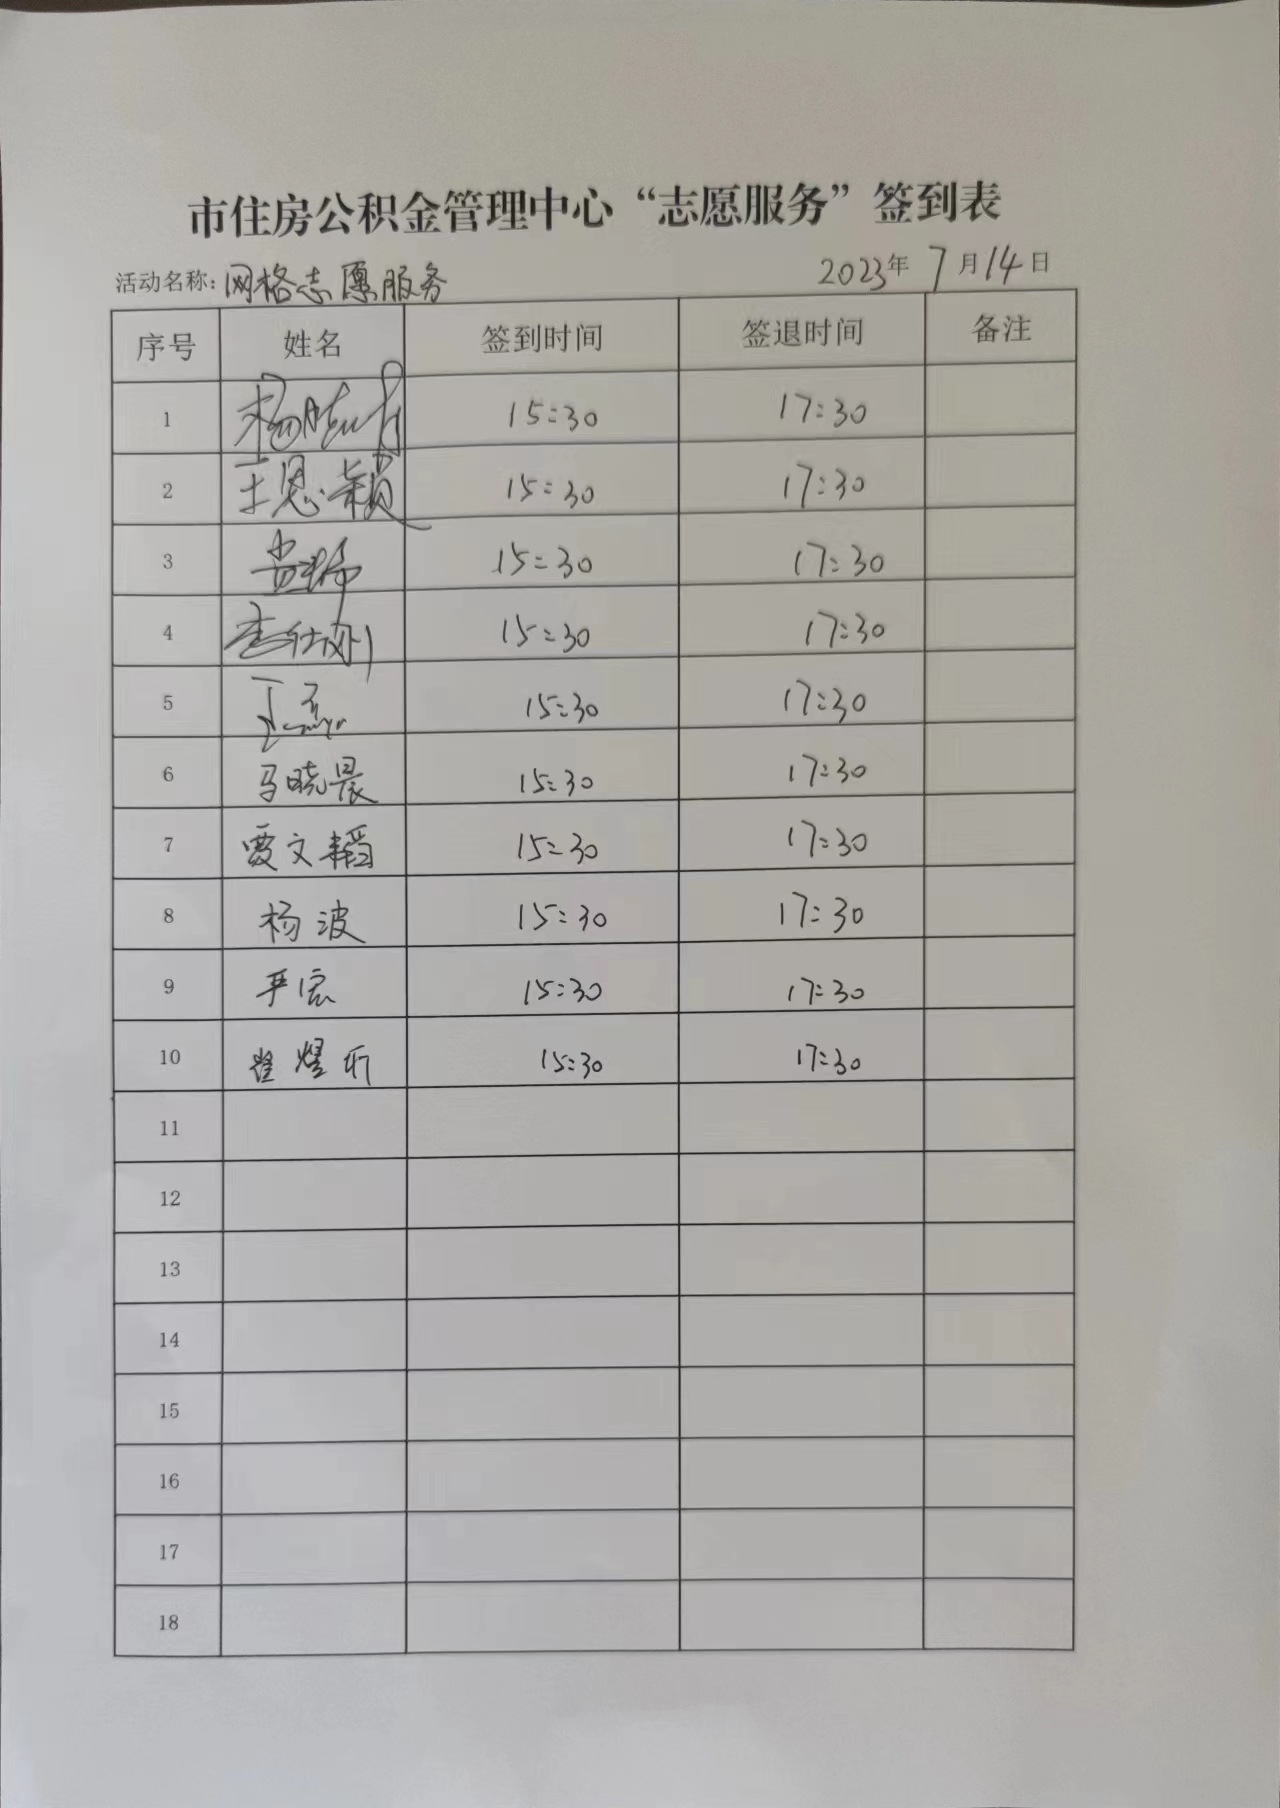 市住房公积金管理中心“志愿服务”签到表
活动名称：网格志愿服务 2023年7月14日
序号 姓名 签到时间 签退时间 备注
1 15:30 17:30
2 王恩颖 15:30 17:30
3 15:30 17:30
4 15:30 17:30
5 15:30 17:30
6 马晓晨 15:30 17:30
7 贾文韬 15:30 17:30
8 杨波 15:30 17:30
9 严宏 15:30 17:30
10 15:30 17:30
11
12
13
14
15
16
17
18